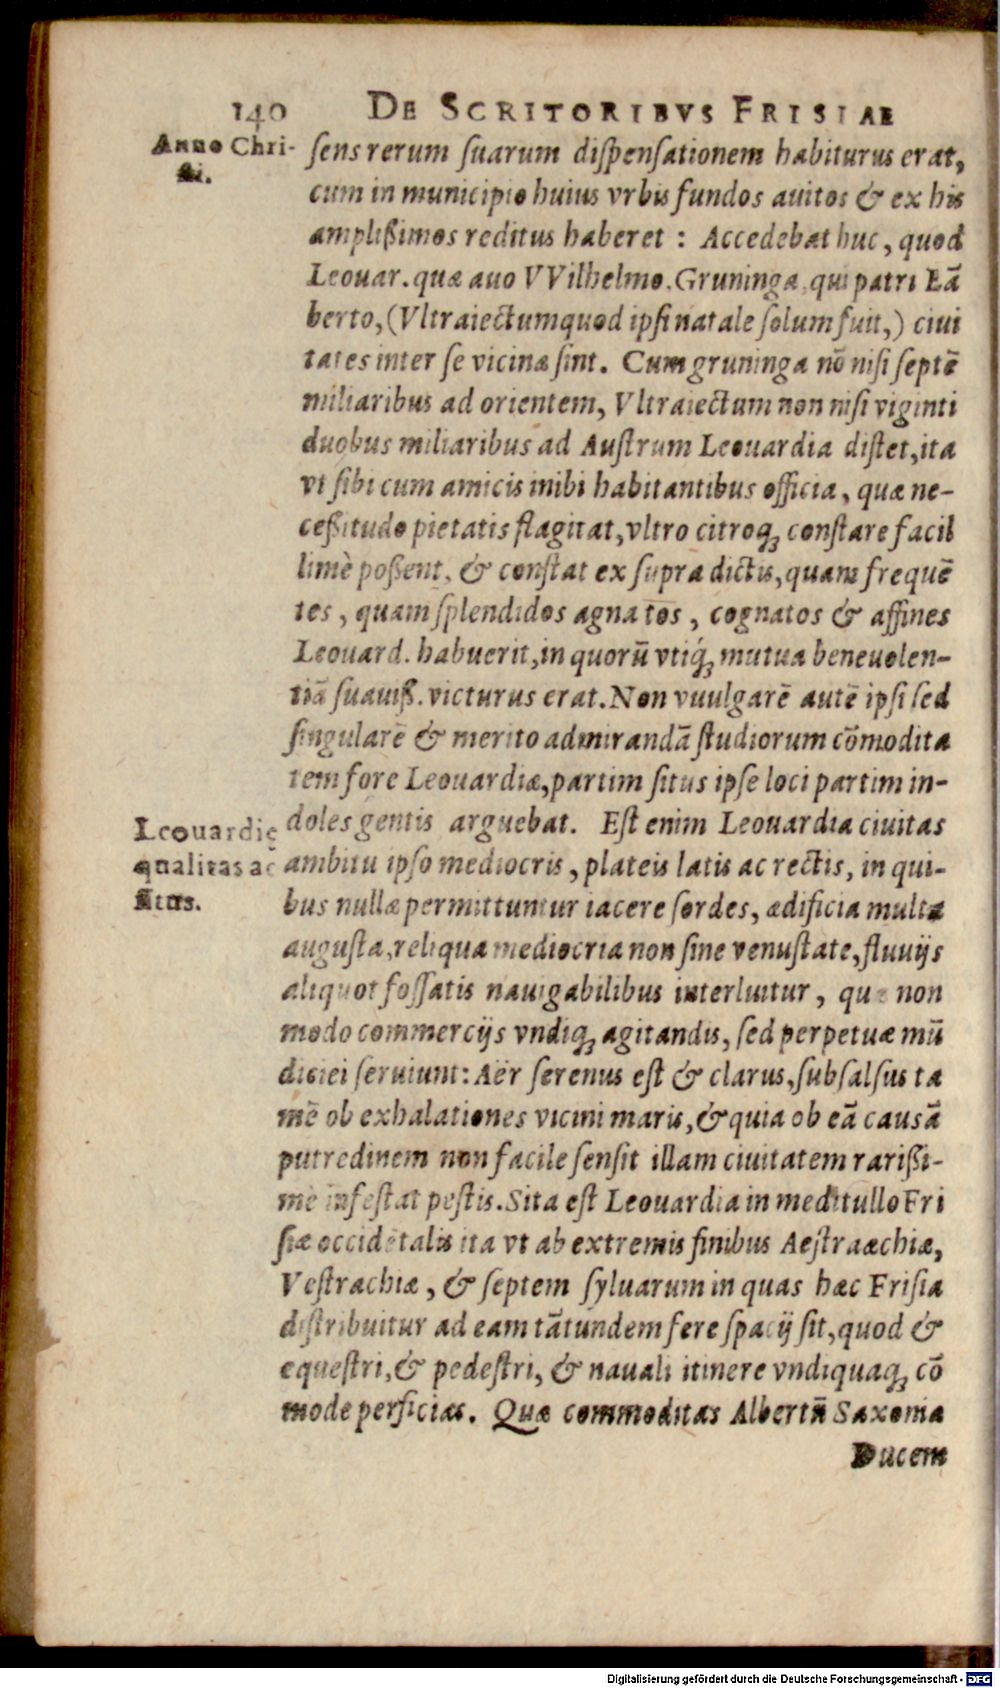 140 DE SCRITORIBVS FRISIAE
Anno Chri-
sti.
sens rerum suarum dispensationem habiturus erat,
cum in municipio huius vrbis fundos auitos & ex his
amplißimos reditus haberet : Accedebat huc, quod
Leouar. quæ auo VVilhelmo. Gruninga, qui patri Eã
berto, (Vltraiectumquod ipsi natale solum fuit,) ciui
tates inter se vicinæ sint. Cum gruninga nõ nisi septẽ
miliaribus ad orientem, Vltraiectum non nisi viginti
duobus miliaribus ad Austrum Leouardia distet, ita
vt sibi cum amicis inibi habitantibus officia, quæ ne-
ceßitudo pietatis flagitat, vltro citroq; constare facil
limè poßent, & constat ex supra dictis, quam frequẽ
tes, quam splendidos agnatos, cognatos & affines
Leouard. habuerit, in quorũ vtiq́; mutua beneuolen-
tiã suauiß. victurus erat. Non vuulgarẽ autẽ ipsi sed
singularẽ & merito admirandã studiorum cõmodita
tem fore Leouardiæ, partim situs ipse loci partim in-
doles gentis arguebat. Est enim Leouardia ciuitas
Leouardię
qualitas ac
situs.
ambitu ipso mediocris, plateis latis ac rectis, in qui-
bus nullæ permittuntur iacere sordes, ædificia multa
augusta, reliqua mediocria non sine venustate, fluuijs
aliquot fossatis nauigabilibus interluitur, quæ non
modo commercijs vndiq; agitandis, sed perpetuæ mũ
diciei seruiunt: Aër serenus est & clarus, subsalsus ta
mẽ ob exhalationes vicini maris, & quia ob eã causã
putredinem non facile sensit illam ciuitatem rarißi-
mè infestat pestis. Sita est Leouardia in meditullo Fri
siæ occidẽtalis ita vt ab extremis finibus Aestraæchiæ,
Vestrachiæ, & septem syluarum in quas hæc Frisia
distribuitur ad eam tãtundem fere spacij sit, quod &
equestri, & pedestri, & nauali itinere vndiquaq; cõ
mode perficias. Quæ commoditas Albertũ Saxonia
Ducem
Digitalisierung gefördert durch die Deutsche Forschungsgemeinschaft - DFG